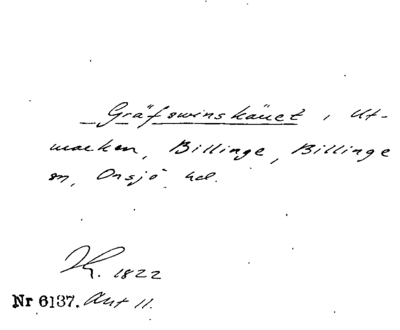 Gräfswinskäuet, Ut-
marken, Billinge, Billinge
sn, Onsjö hd.
1822
Nr 6137. Akt 11.